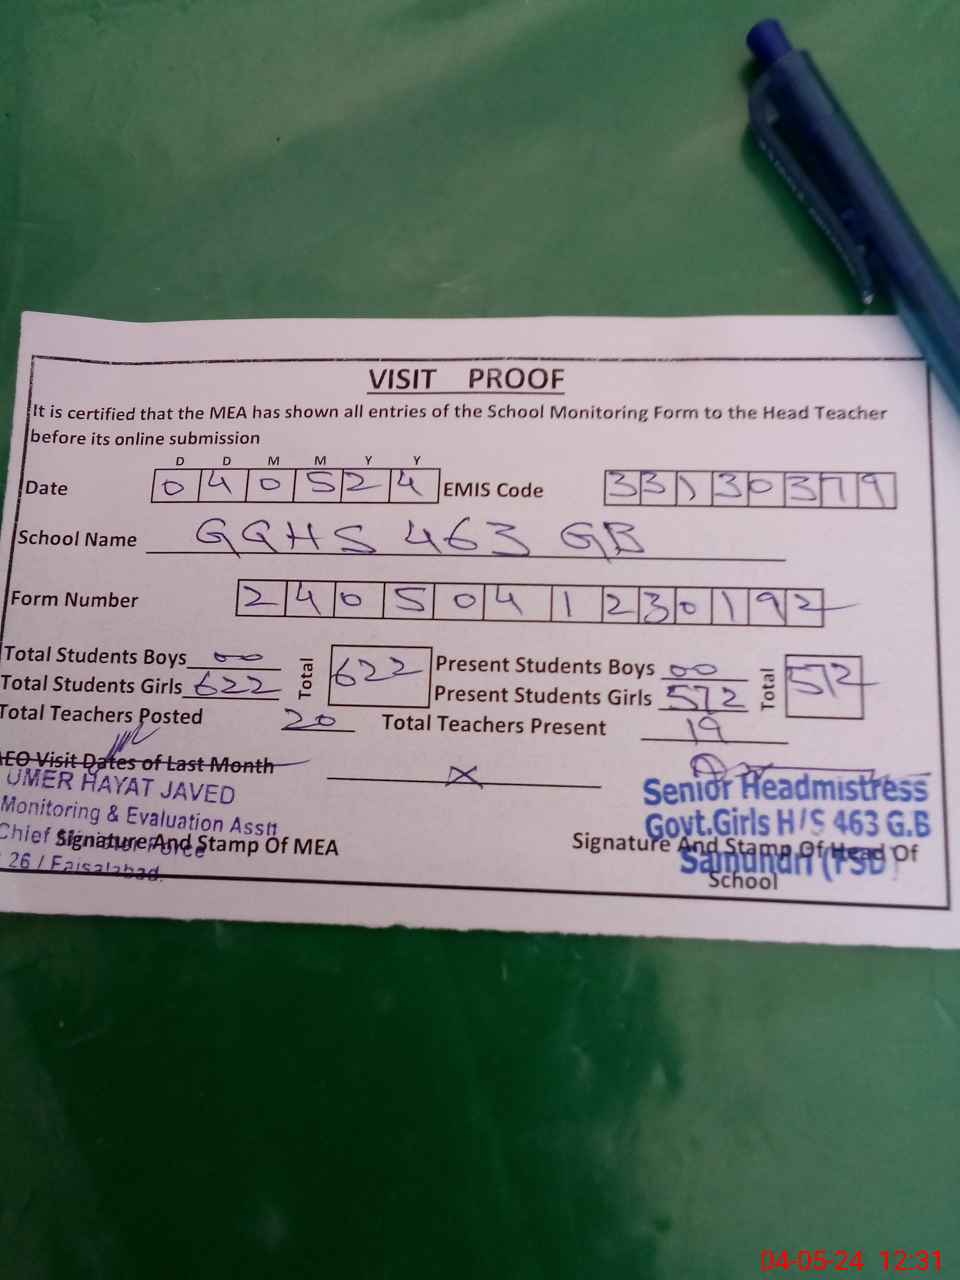 VISIT PROOF
It is certified that the MEA has shown all entries of the School Monitoring Form to the Head Teacher
before its online submission
D D M M Y Y
Date 0 4 0 5 2 4 EMIS Code 3 3 1 3 0 3 7 9
School Name GGHS 463 GB
Form Number 2 4 0 5 0 4 1 2 3 0 1 9 2
Total Students Boys 00 Total 622 Present Students Boys 00 Total 572
Total Students Girls 622 Present Students Girls 572
Total Teachers Posted 20 Total Teachers Present 19
AEO Visit Dates of Last Month X
UMER HAYAT JAVED
Monitoring & Evaluation Asstt
Chief Minister Force
26 / Faisalabad.
Signature And Stamp Of MEA
Senior Headmistress
Govt.Girls H/S 463 G.B
Samundri (FSD)
Signature And Stamp Of Head Of
School
04-05-24 12:31